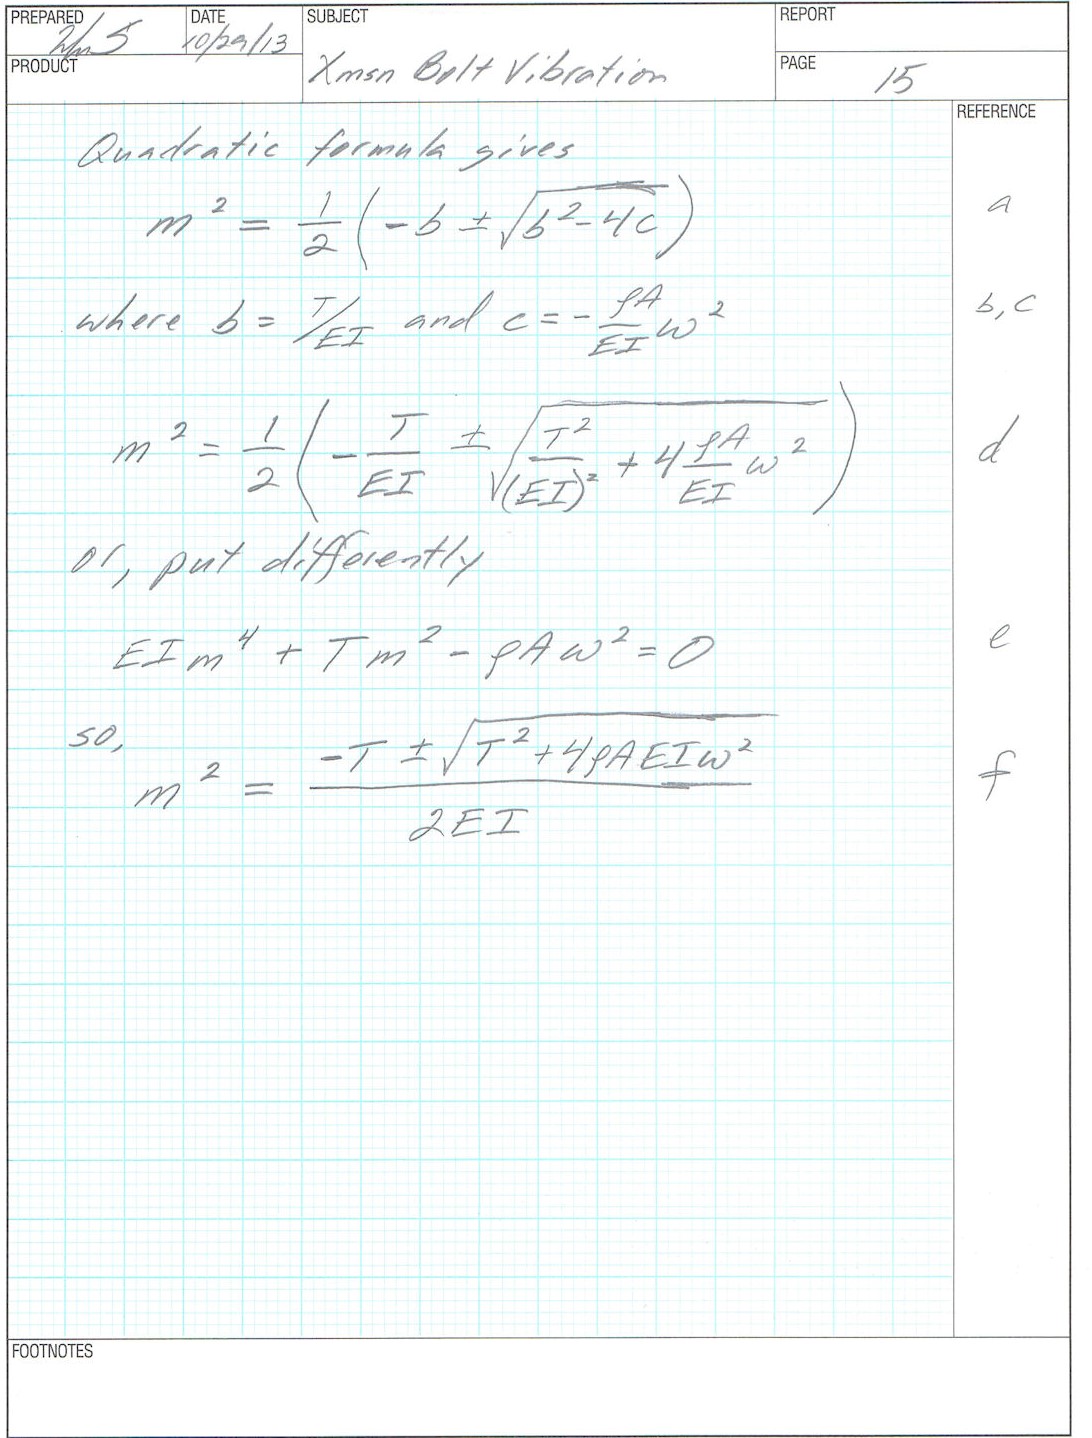 PREPARED
DATE 10/29/13
SUBJECT
Xmsn Bolt Vibration
REPORT
PRODUCT
PAGE 15
REFERENCE
Quadratic formula gives
m² = 1/2 (-b ± √(b²-4c)) a
where b = T/EI and c = - ρA/EI ω² b, c
m² = 1/2 (- T/EI ± √(T²/(EI)² + 4 ρA/EI ω²)) d
or, put differently
EIm⁴ + Tm² - ρAω² = 0 e
so,
m² = (-T ± √(T² + 4ρAEIω²)) / 2EI f
FOOTNOTES